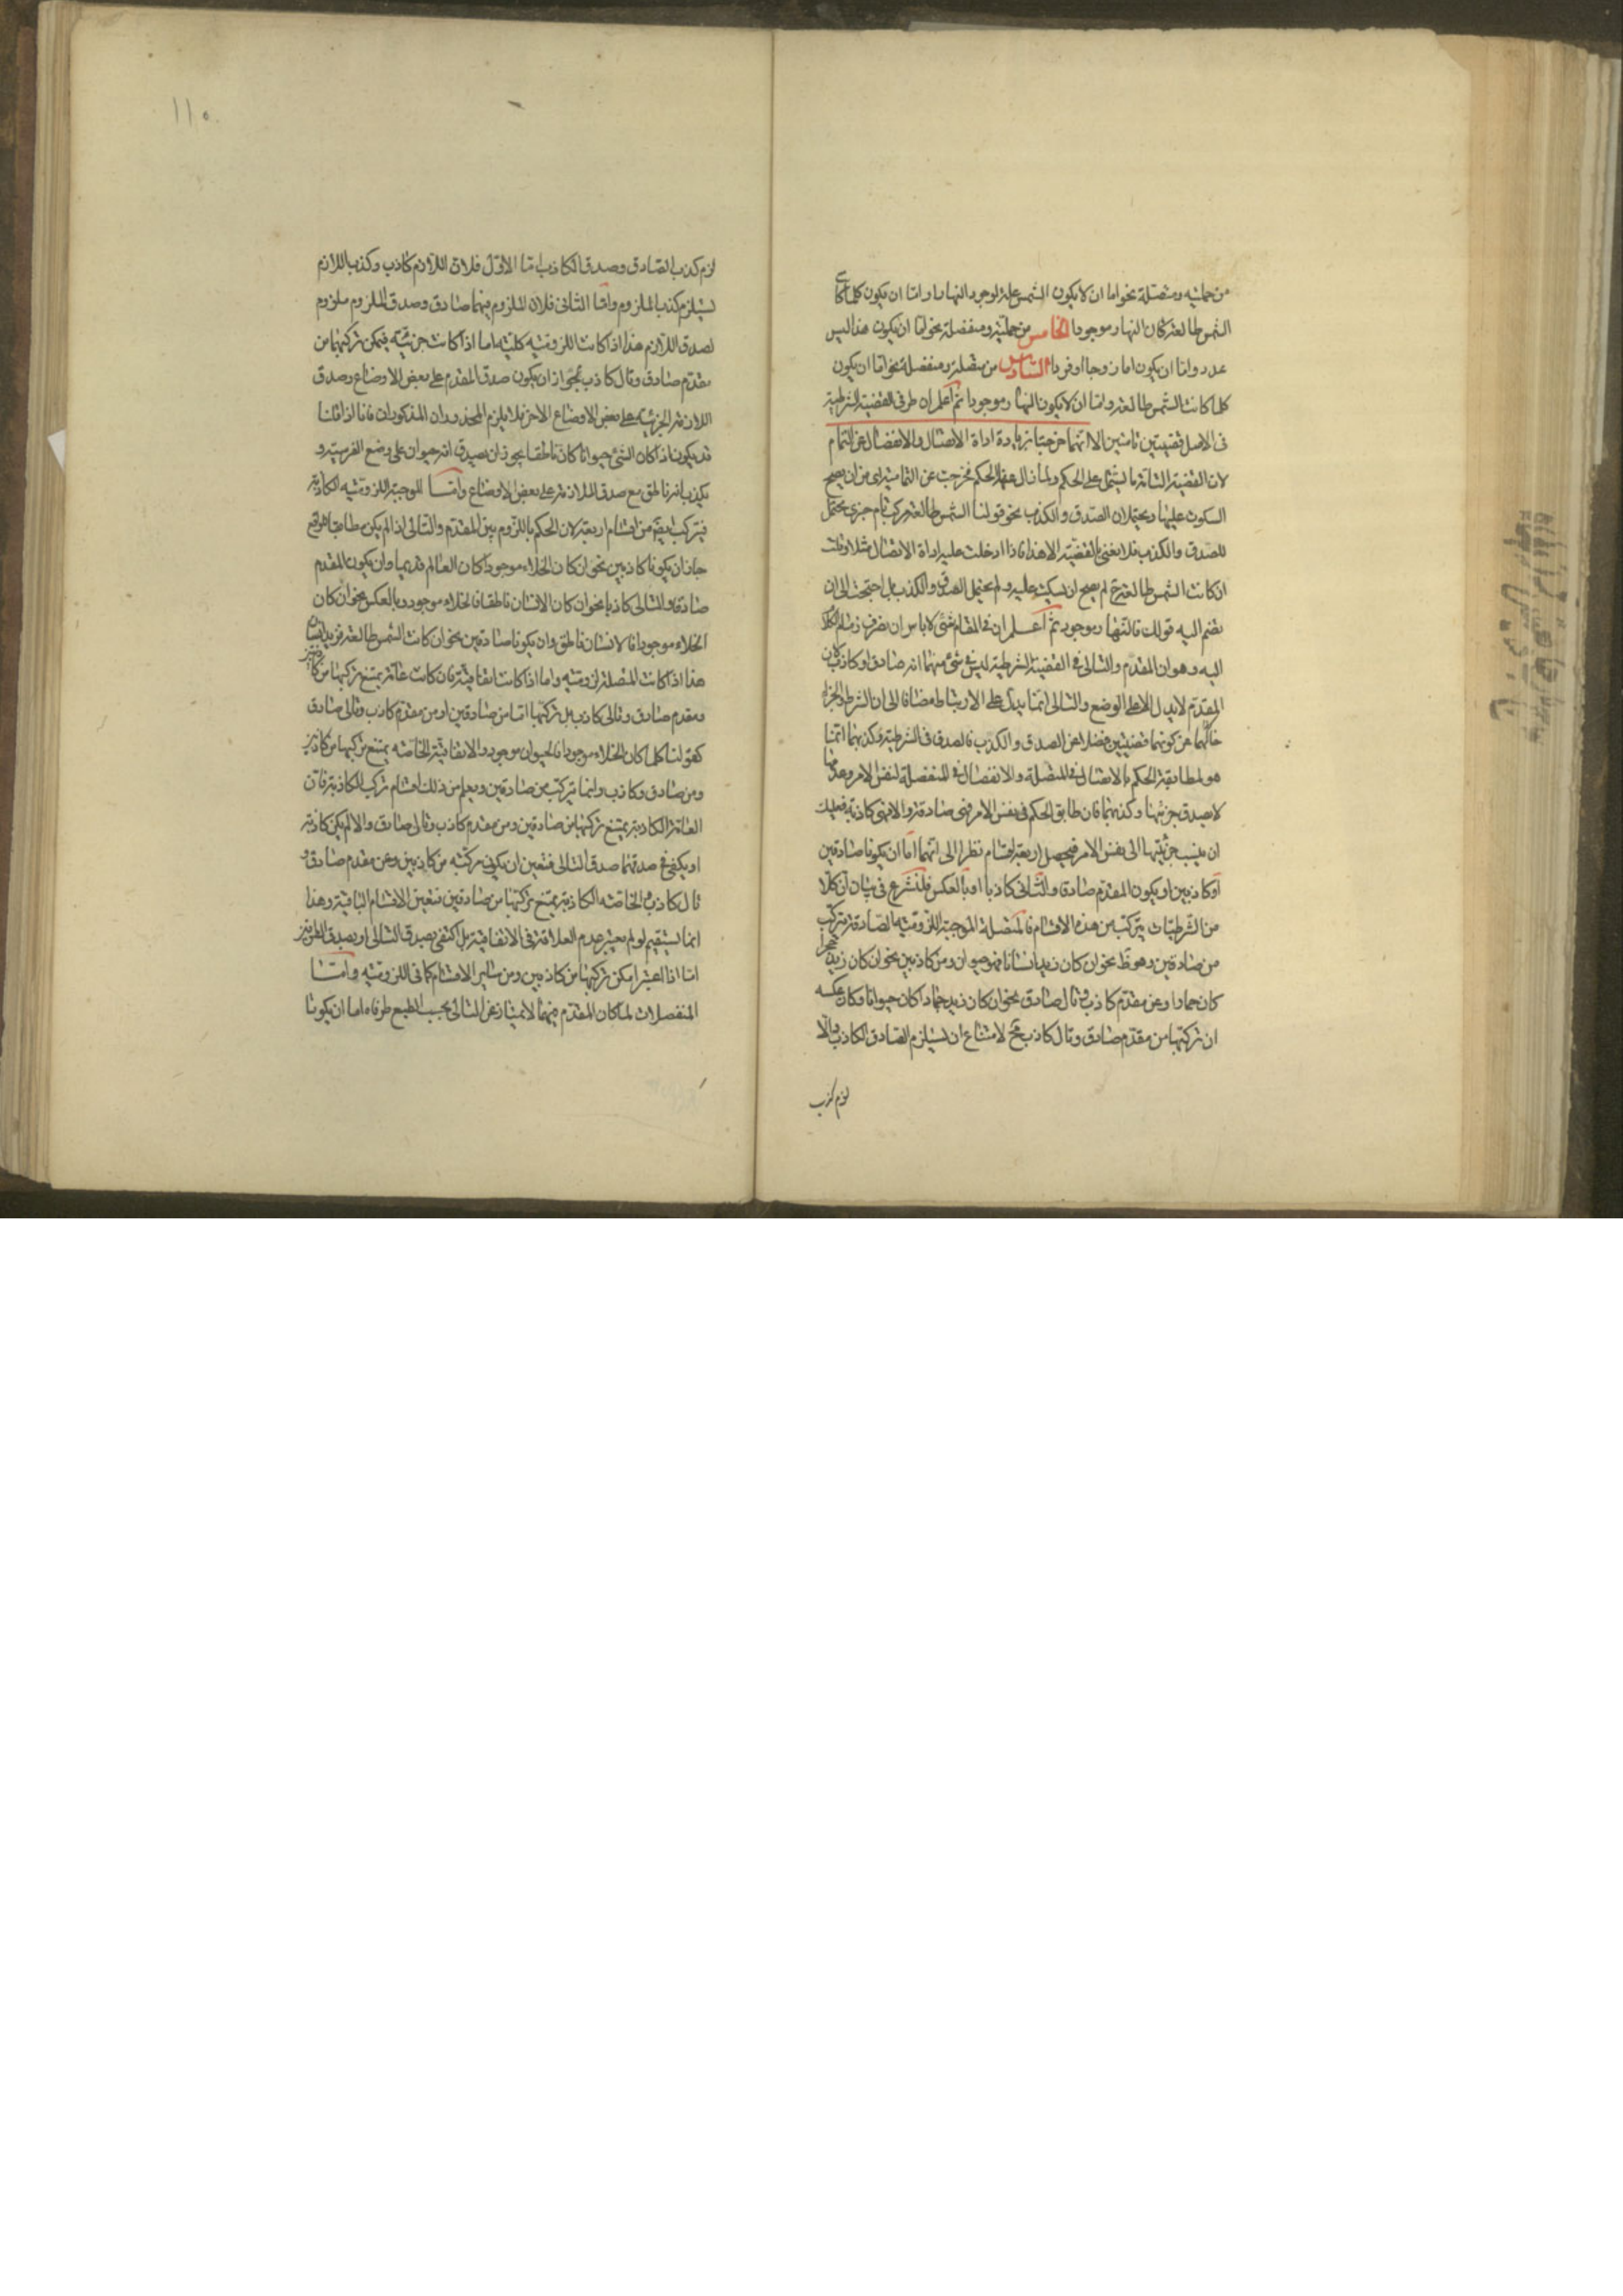 من حملية ومتصلة نحو اما ان لا يكون الشمس علة لوجود النهار واما ان يكون كلما كانت
الشمس طالعة كان النهار موجودا الخامس من حملية ومنفصلة نحو اما ان يكون هذا ليس
عددا واما ان يكون اما زوجا او فردا السادس من متصلة ومنفصلة نحو اما ان يكون
كلما كانت الشمس طالعة واما ان لا يكون النهار موجودا ثم اعلم ان طرفى القضية الشرطية
فى الاصل قضيتين تامتين الا انهما خرجتا بزيادة اداة الاتصال والانفصال عن التمام
لان القضية التامة ما يشتمل على الحكم ولما زال عنها الحكم فخرجت عن التمامية اى من ان يصح
السكوت عليها ويحتمل الصدق والكذب نحو قولنا الشمس طالعة مركب تام خبرى محتمل
للصدق والكذب فلا نعنى بالقضية الا هذا فاذا ادخلت عليه اداة الاتصال مثلا وقلت
ان كانت الشمس طالعة لم يصح ان يسكت عليه ولم يحتمل الصدق والكذب بل احتجت الى ان
تضم اليه قولك فالنهار موجود ثم اعلم ان فى المقام شئ لا باس ان نصرف زمام الكلام
اليه وهو ان المقدم والتالى فى القضية الشرطية ليس فى شئ منهما انه صادق او كاذب لان
المقدم لا يدل الا على الوضع والتالى انما يدل على الارتباط مضافا الى ان الشرط والجزاء
حالهما عن كونهما قضيتين فضلا عن الصدق والكذب فالصدق فى الشرطية وكذبهما انما
هو لمطابقة الحكم بالاتصال فى المتصلة والانفصال فى المنفصلة لنفس الامر وعدمها
لا بصدق جزئيها وكذبهما فان طابق الحكم فى نفس الامر فهى صادقة والا فهى كاذبة فعليك
ان ينسب جزئيها الى نفس الامر فيحصل اربعة اقسام نظرا الى انهما اما ان يكونا صادقين
او كاذبين او يكون المقدم صادقا والتالى كاذبا او بالعكس فلنشرع فى بيان ان كلا
من الشرطيات يتركب من هذه الاقسام فالمتصلة الموجبة اللزومية الصادقة تتركب
من صادقين وهو ظ نحو ان كان زيد انسانا فهو حيوان ومن كاذبين نحو ان كان زيد حجرا
كان جمادا وعن مقدم كاذب وتال صادق نحو ان كان زيد حمارا كان حيوانا وكان عكسه
ان تركبها من مقدم صادق وتال كاذب مح لامتناع ان يستلزم الصادق الكاذب والا
لزم كذب
١١٥
لزم كذب الصادق وصدق الكاذب اما الاول فلان اللازم كاذب وكذب اللازم
يستلزم كذب الملزوم واما الثانى فلان الملزوم فيهما صادق وصدق الملزوم ملزوم
لصدق اللازم هذا اذا كانت اللزومية كلية اما اذا كانت جزئية فيمكن تركبها من
مقدم صادق وتال كاذب لجواز ان يكون صدق المقدم على بعض الاوضاع وصدق
اللازمة الجزئية على بعض الاوضاع الاخر فلا يلزم المحذوران المذكوران فانا اذا قلنا
قد يكون اذا كان الشئ حيوانا كان ناطقا يجوز ان يصدق انه حيوان على وضع الفرسية و
يكذب انه ناطق مع صدق الملازمة على بعض الاوضاع واما الموجبة اللزومية الكاذبة
فيتركب ايضا من اقسام اربعة لان الحكم باللزوم بين المقدم والتالى اذا لم يكن مطابقا للواقع
جاز ان يكونا كاذبين نحو ان كان الخلاء موجودا كان العالم قديما وان يكون المقدم
صادقا والتالى كاذبا نحو ان كان الانسان ناطقا فالخلاء موجود وبالعكس نحو ان كان
الخلاء موجودا فالانسان ناطق وان يكونا صادقين نحو ان كانت الشمس طالعة فزيد انسان
هذا اذا كانت المتصلة لزومية واما اذا كانت اتفاقية فان كانت عامة يمتنع تركبها من كاذبين
ومقدم صادق وتالى كاذب بل تركبها اما من صادقين او من مقدم كاذب وتالى صادق
كقولنا كلما كان الخلاء موجودا فالحيوان موجود والاتفاقية الخاصة يمتنع تركبها من كاذبين
ومن صادق وكاذب وانما يتركب من صادقين ويعلم من ذلك اقسام تركب الكاذبة فان
العامة الكاذبة يمتنع تركبها من صادقين ومن مقدم كاذب وتالى صادق والا لم يكن كاذبة
اذ يكفى فى صدقها صدق التالى فتعين ان يكون مركبة من كاذبين وعن مقدم صادق و
تال كاذب والخاصة الكاذبة يمتنع تركبها من صادقين فتعين الاقسام الباقية وهذا
انما يستقيم لو لم يعتبر عدم العلاقة فى الاتفاقية بل اكتفى بصدق التالى او بصدق الطرفين
اما اذا اعتبر امكن تركبها من كاذبين ومن سائر الاقسام كما فى اللزومية واما
المنفصلات لما كان المقدم فيها لا يمتاز عن التالى بحسب الطبع طرفاه اما ان يكونا